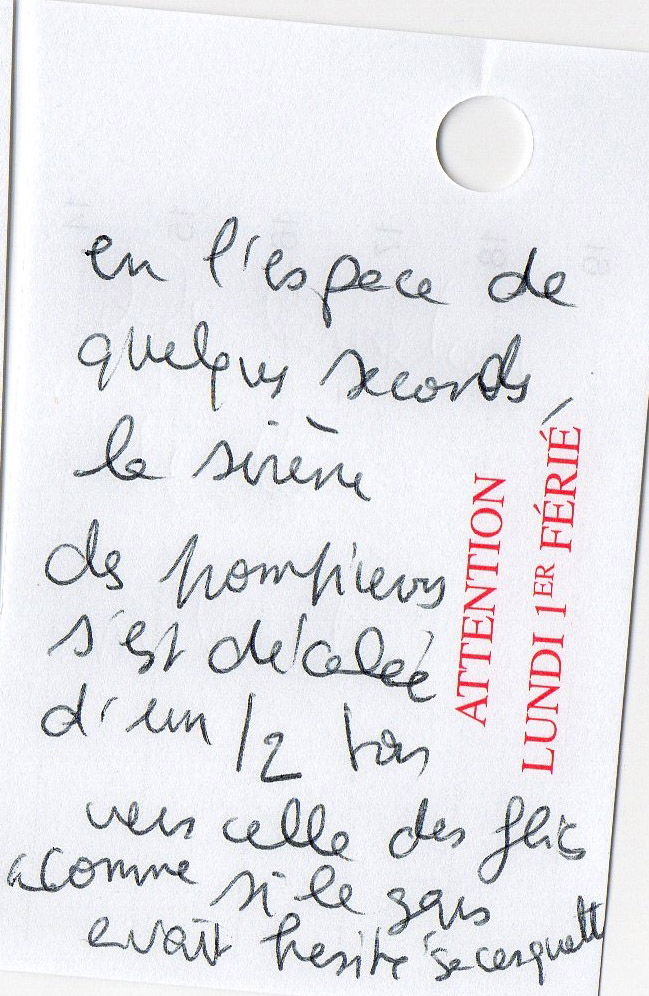 en l'espace de
quelques secondes,
la sirène
des pompiers
s'est décalée
d'un 1/2 ton
vers celle des flics
comme si le gars
avait hesité
ATTENTION
LUNDI 1ER FÉRIÉ